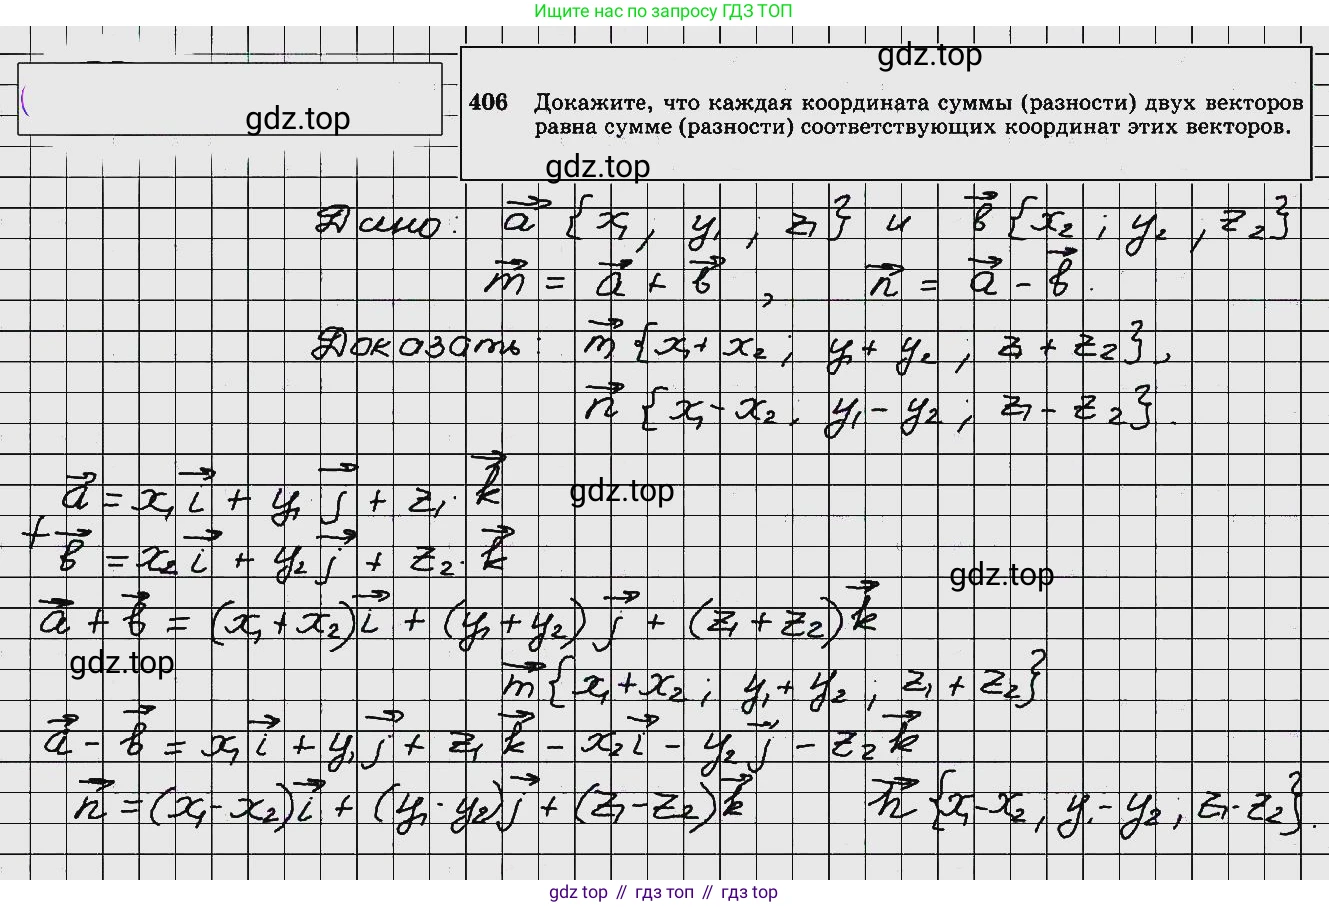 Ищите нас по запросу ГДЗ ТОП
gdz.top
gdz.top
406 Докажите, что каждая координата суммы (разности) двух векторов
равна сумме (разности) соответствующих координат этих векторов.
gdz.top
Дано: a⃗ {x₁, y₁, z₁} и b⃗ {x₂; y₂, z₂}
m⃗ = a⃗ + b⃗, n⃗ = a⃗ - b⃗.
Доказать: m⃗ {x₁+x₂; y₁+y₂; z₁+z₂},
n⃗ {x₁-x₂; y₁-y₂; z₁-z₂}.
a⃗ = x₁i⃗ + y₁j⃗ + z₁·k⃗
gdz.top
+ b⃗ = x₂i⃗ + y₂j⃗ + z₂·k⃗
gdz.top
a⃗ + b⃗ = (x₁+x₂)i⃗ + (y₁+y₂)j⃗ + (z₁+z₂)k⃗
gdz.top
m⃗ {x₁+x₂; y₁+y₂; z₁+z₂}
a⃗ - b⃗ = x₁i⃗ + y₁j⃗ + z₁k⃗ - x₂i⃗ - y₂j⃗ - z₂k⃗
n⃗ = (x₁-x₂)i⃗ + (y₁-y₂)j⃗ + (z₁-z₂)k⃗ n⃗ {x₁-x₂; y₁-y₂; z₁-z₂}.
gdz top // гдз топ // gdz top